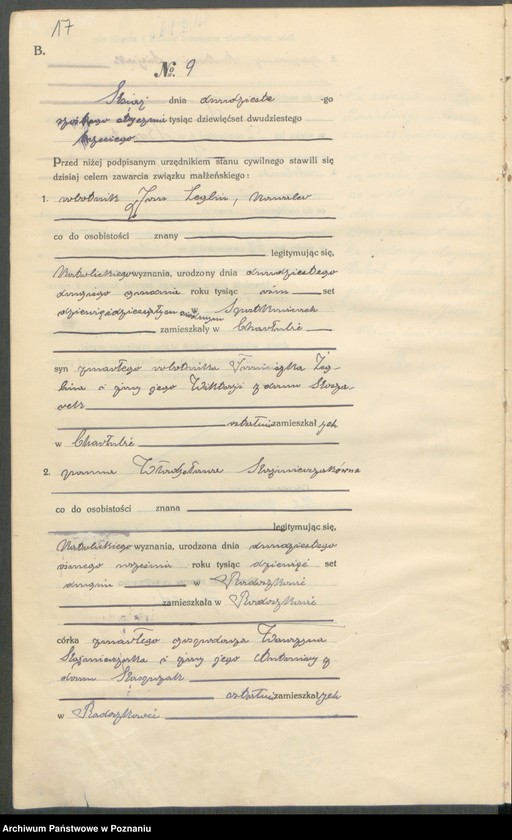 17
B.
№ 9
dnia dwudziestego
stycznia tysiąc dziewięćset dwudziestego
trzeciego
Przed niżej podpisanym urzędnikiem stanu cywilnego stawili się
dzisiaj celem zawarcia związku małżeńskiego:
1. robotnik Jan Leglin, kawaler
co do osobistości znany
legitymując się,
katolickiego wyznania, urodzony dnia dwudziestego
drugiego grudnia roku tysiąc osiem set
dziewięćdziesiątym w
zamieszkały w
syn zmarłego robotnika Franciszka Leg-
lina i żony jego Wiktorji z domu
ostatnio zamieszkałych
w
2. panna Władysława Kaźmierczakówna
co do osobistości znana
legitymując się,
katolickiego wyznania, urodzona dnia dwudziestego
ósmego września roku tysiąc dziewięć set
drugim w Radoszkowie
zamieszkała w Radoszkowie
córka zmarłego gospodarza Wawrzyna
Kaźmierczaka i żony jego Antoniny z
domu
ostatnio zamieszkałych
w Radoszkowie
Archiwum Państwowe w Poznaniu